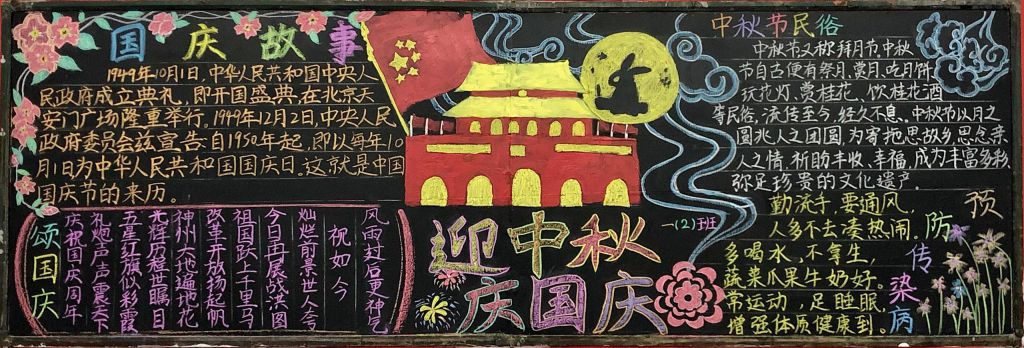 国庆故事
1949年10月1日,中华人民共和国中央人
民政府成立典礼,即开国盛典,在北京天
安门广场隆重举行。1949年12月2日,中央人民
政府委员会兹宣告:自1950年起,即以每年10
月1日为中华人民共和国国庆日。这就是中国
国庆节的来历。
颂国庆
庆祝国庆周年
礼炮声声震天下
五星红旗似彩霞
光辉历程世瞩目
神州大地遍地花
改革开放扬起帆
祖国跃上千里马
今日再展战洪图
灿烂前景世人夸
祝如今
风雨过后更神气
迎中秋
庆国庆
一(2)班
中秋节民俗
中秋节又称拜月节,中秋
节自古便有祭月、赏月、吃月饼、
玩花灯、赏桂花、饮桂花酒
等民俗,流传至今,经久不息、中秋节以月之
圆兆人之团圆,为寄托思故乡,思念亲
人之情,祈盼丰收、幸福,成为丰富多彩
弥足珍贵的文化遗产。
预防传染病
勤洗手,要通风,
人多不去凑热闹。
多喝水,不拿生,
蔬菜瓜果牛奶好。
常运动,足睡眠,
增强体质健康到。